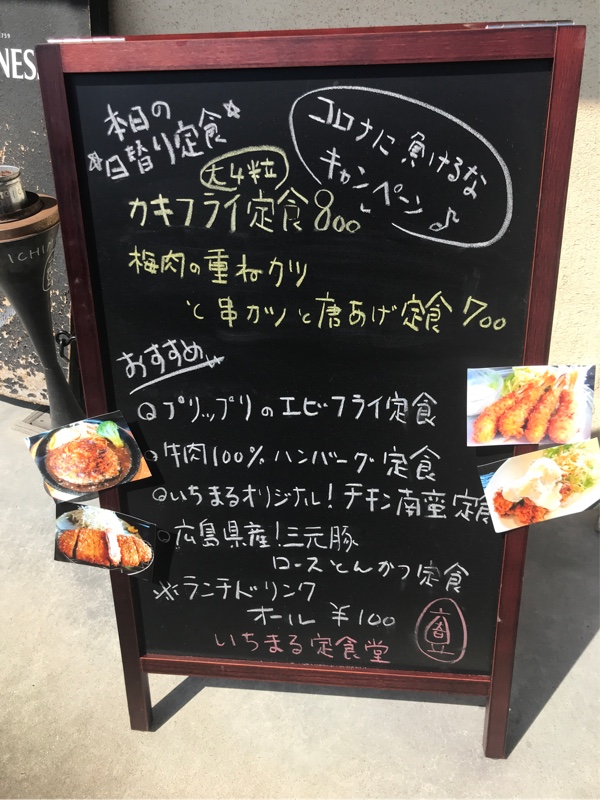 NES
ICHI
本日の
☆日替り定食☆
コロナに負けるな
キャンペーン♪
大4粒
カキフライ定食 800
梅肉の重ねカツ
と串カツと唐あげ定食 700
おすすめ
プリップリのエビフライ定食
牛肉100%ハンバーグ定食
いちまるオリジナル!チキン南蛮定食
広島県産!三元豚
ロースとんかつ定食
※ランチドリンク
オール ¥100
いちまる定食堂